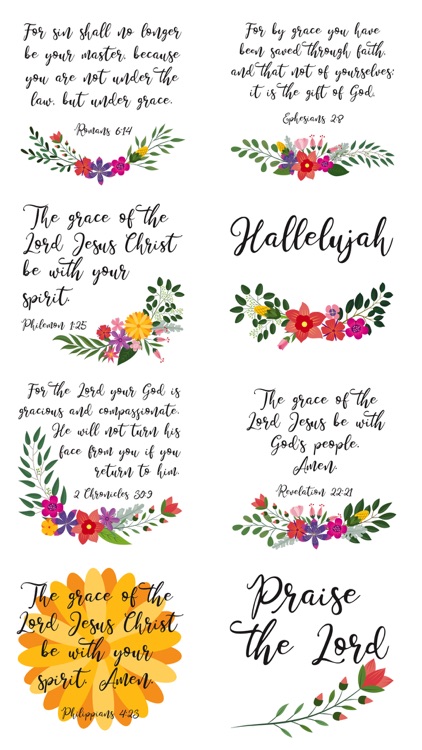 For sin shall no longer
be your master, because
you are not under the
law, but under grace.
Romans 6:14
For by grace you have
been saved through faith,
and that not of yourselves;
it is the gift of God,
Ephesians 2:8
The grace of the
Lord Jesus Christ
be with your
spirit.
Philemon 1:25
Hallelujah
For the Lord your God is
gracious and compassionate.
He will not turn his
face from you if you
return to him.
2 Chronicles 30:9
The grace of the
Lord Jesus be with
God's people.
Amen.
Revelation 22:21
The grace of the
Lord Jesus Christ
be with your
spirit. Amen
Philippians 4:23
Praise
the Lord